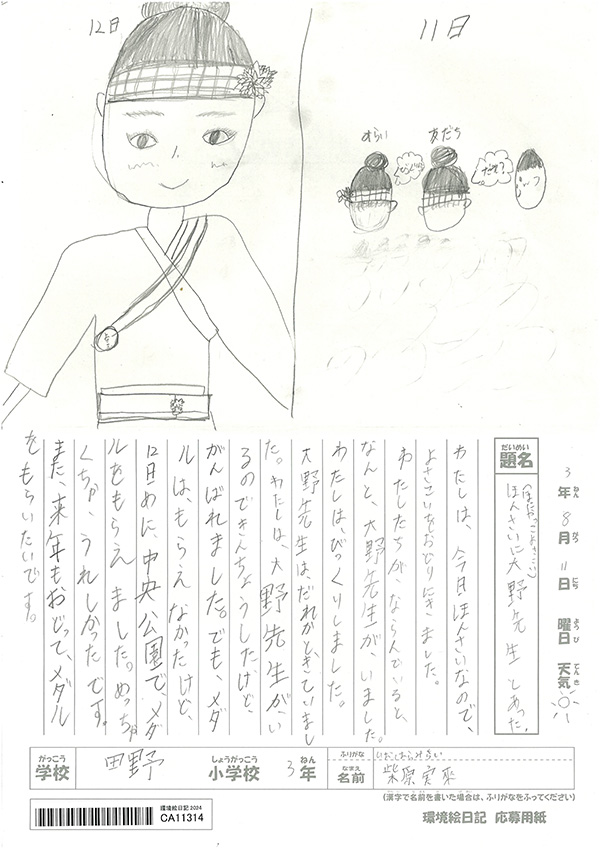 12日
11日
みらい
友だち
びっくり
だれ?
3年 8月 11日 曜日 天気
ねん がつ にち ようび てんき
だいめい
題名
ほんさいに大野先生とあった。
わたしは、今日ほんさいなので、
よさこいをおどりにきました。
わたしたちが、ならんでいると、
なんと、大野先生が、いました。
わたしはびっくりしました。
大野先生は、だれかどきていまし
た。わたしは、大野先生が、い
るのできんちょうしたけど、
がんばれました。でも、メダ
ルは、もらえなかったけど、
12日めに、中央公園で、メダ
ルをもらえました。めっちゃ
くちゃ、うれしかったです。
また、来年もおどって、メダル
をもらいたいです。
がっこう
学校
田野
しょうがっこう
小学校
3年
ねん
ふりがな
しばはらみらい
なまえ
名前
柴原実來
(漢字で名前を書いた場合は、ふりがなをふってください)
環境絵日記 2024
CA11314
環境絵日記 応募用紙